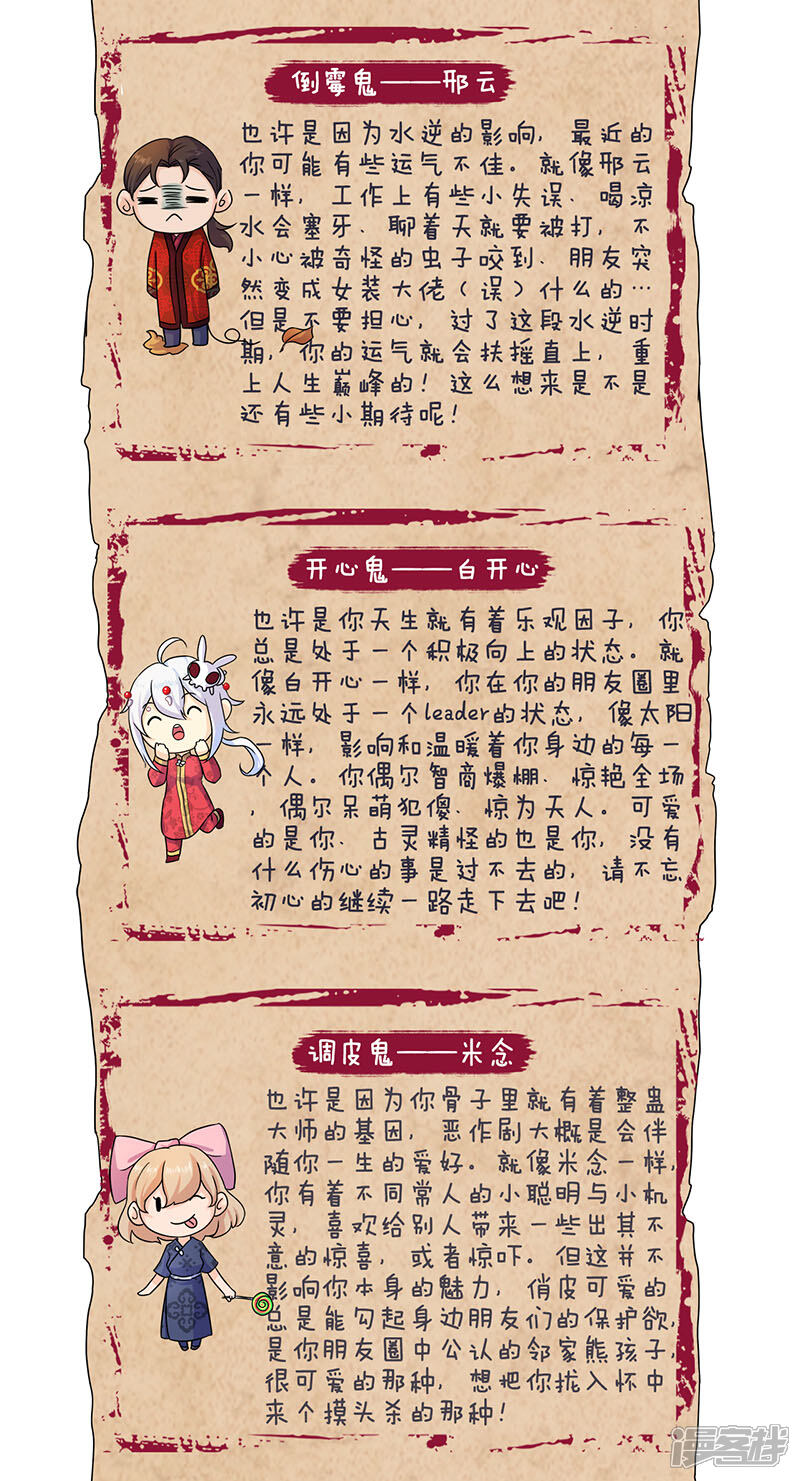 倒霉鬼——邢云
也许是因为水逆的影响，最近的
你可能有些运气不佳。就像邢云
一样，工作上有些小失误、喝凉
水会塞牙、聊着天就要被打，不
小心被奇怪的虫子咬到、朋友突
然变成女装大佬（误）什么的…
但是不要担心，过了这段水逆时
期，你的运气就会扶摇直上，重
上人生巅峰的！这么想来是不是
还有些小期待呢！
开心鬼——白开心
也许是你天生就有着乐观因子，你
总是处于一个积极向上的状态。就
像白开心一样，你在你的朋友圈里
永远处于一个leader的状态，像太阳
一样，影响和温暖着你身边的每一
个人。你偶尔智商爆棚、惊艳全场
，偶尔呆萌犯傻、惊为天人。可爱
的是你、古灵精怪的也是你，没有
什么伤心的事是过不去的，请不忘
初心的继续一路走下去吧！
调皮鬼——米念
也许是因为你骨子里就有着整蛊
大师的基因，恶作剧大概是会伴
随你一生的爱好。就像米念一样，
你有着不同常人的小聪明与小机
灵，喜欢给别人带来一些出其不
意的惊喜，或者惊吓。但这并不
影响你本身的魅力，俏皮可爱的
总是能勾起身边朋友们的保护欲，
是你朋友圈中公认的邻家熊孩子，
很可爱的那种，想把你拢入怀中
来个摸头杀的那种！
漫客栈